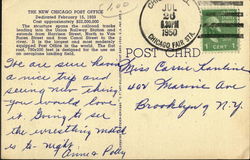 THE NEW CHICAGO POST OFFICE
Dedicated February 15, 1933
Approximately $22,000,000
The structure spans the railroad tracks
leading into the Union Railway Station and
extends from Harrison Street, North to Van
Buren Street and from Canal Street to the
River. It is the largest and most modernly
equipped Post Office in the world. The flat
roof, is designed for the use of
an aeroplane landing field.
We are sure having
a nice trip and
seeing new things
you would love
it. Going to see
the wrestling match
is to-night.
Anna & Polly
JUL
26
1950
CHICAGO FAIR STA.
1 CENT 1
POST CARD
Miss Carrie
402 Marine Ave
Brooklyn 9, N.Y.